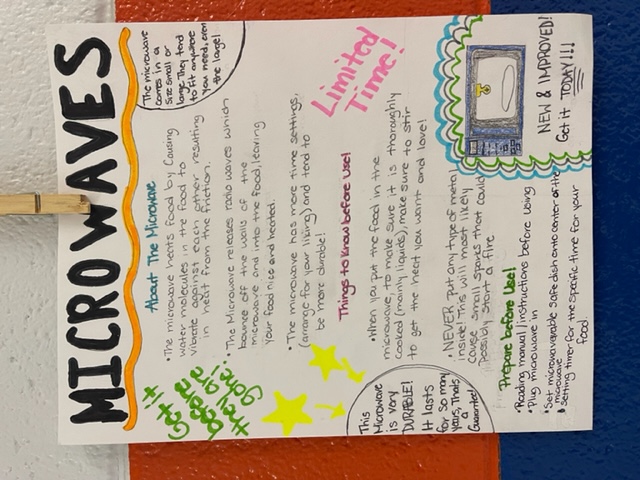 MICROWAVES
The microwave
comes in a
size small or
large. They tend
to fit anywhere
you need, even
the large!
Get it
before
it's gone
About The Microwave
• The microwave heats food by causing
water molecules in the food to
vibrate against each other, resulting
in heat from the friction.
• The Microwave releases radio waves which
bounce off the walls of the
microwave and into the food, leaving
your food nice and heated.
• The microwave has more time settings,
(arrange for your liking) and tend to
be more durable!
Limited
Time!
Things to know before use!
• When you put the food in the
microwave, to make sure it is thoroughly
cooked (mainly liquids), make sure to stir
to get the heat you want and love!
• NEVER put any type of metal
inside! This will most likely
cause small spores that could
possibly start a fire
This
Microwave
is very
DURABLE!
It lasts
for so many
years, Thats
a
Guaranteed!
Prepare before Use!
• Reading manual/instructions before using
• Plug microwave in
• Set microwaveable safe dish onto center of the
microwave
• setting timer for the specific time for your
food.
NEW & IMPROVED!
Get it TODAY!!!